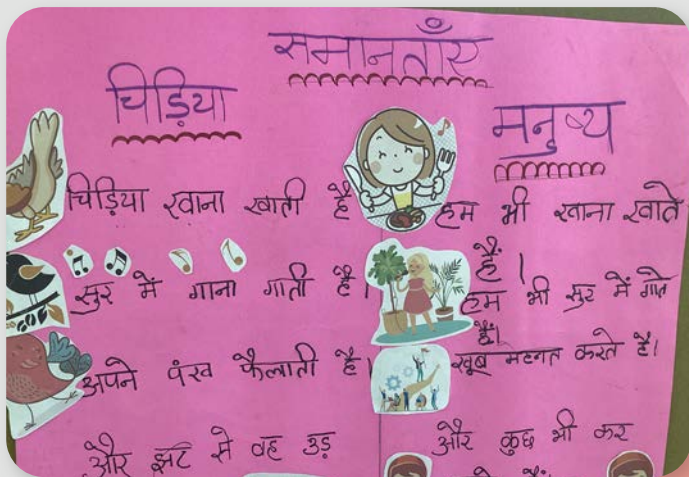 समानताएँ
चिड़िया
मनुष्य
चिड़िया खाना खाती है
सुर में गाना गाती है।
अपने पंख फैलाती है।
और झट से वह उड़
हम भी खाना खाते
हैं।
हम भी सुर में गाते
हैं।
खूब महनत करते है।
और कुछ भी कर